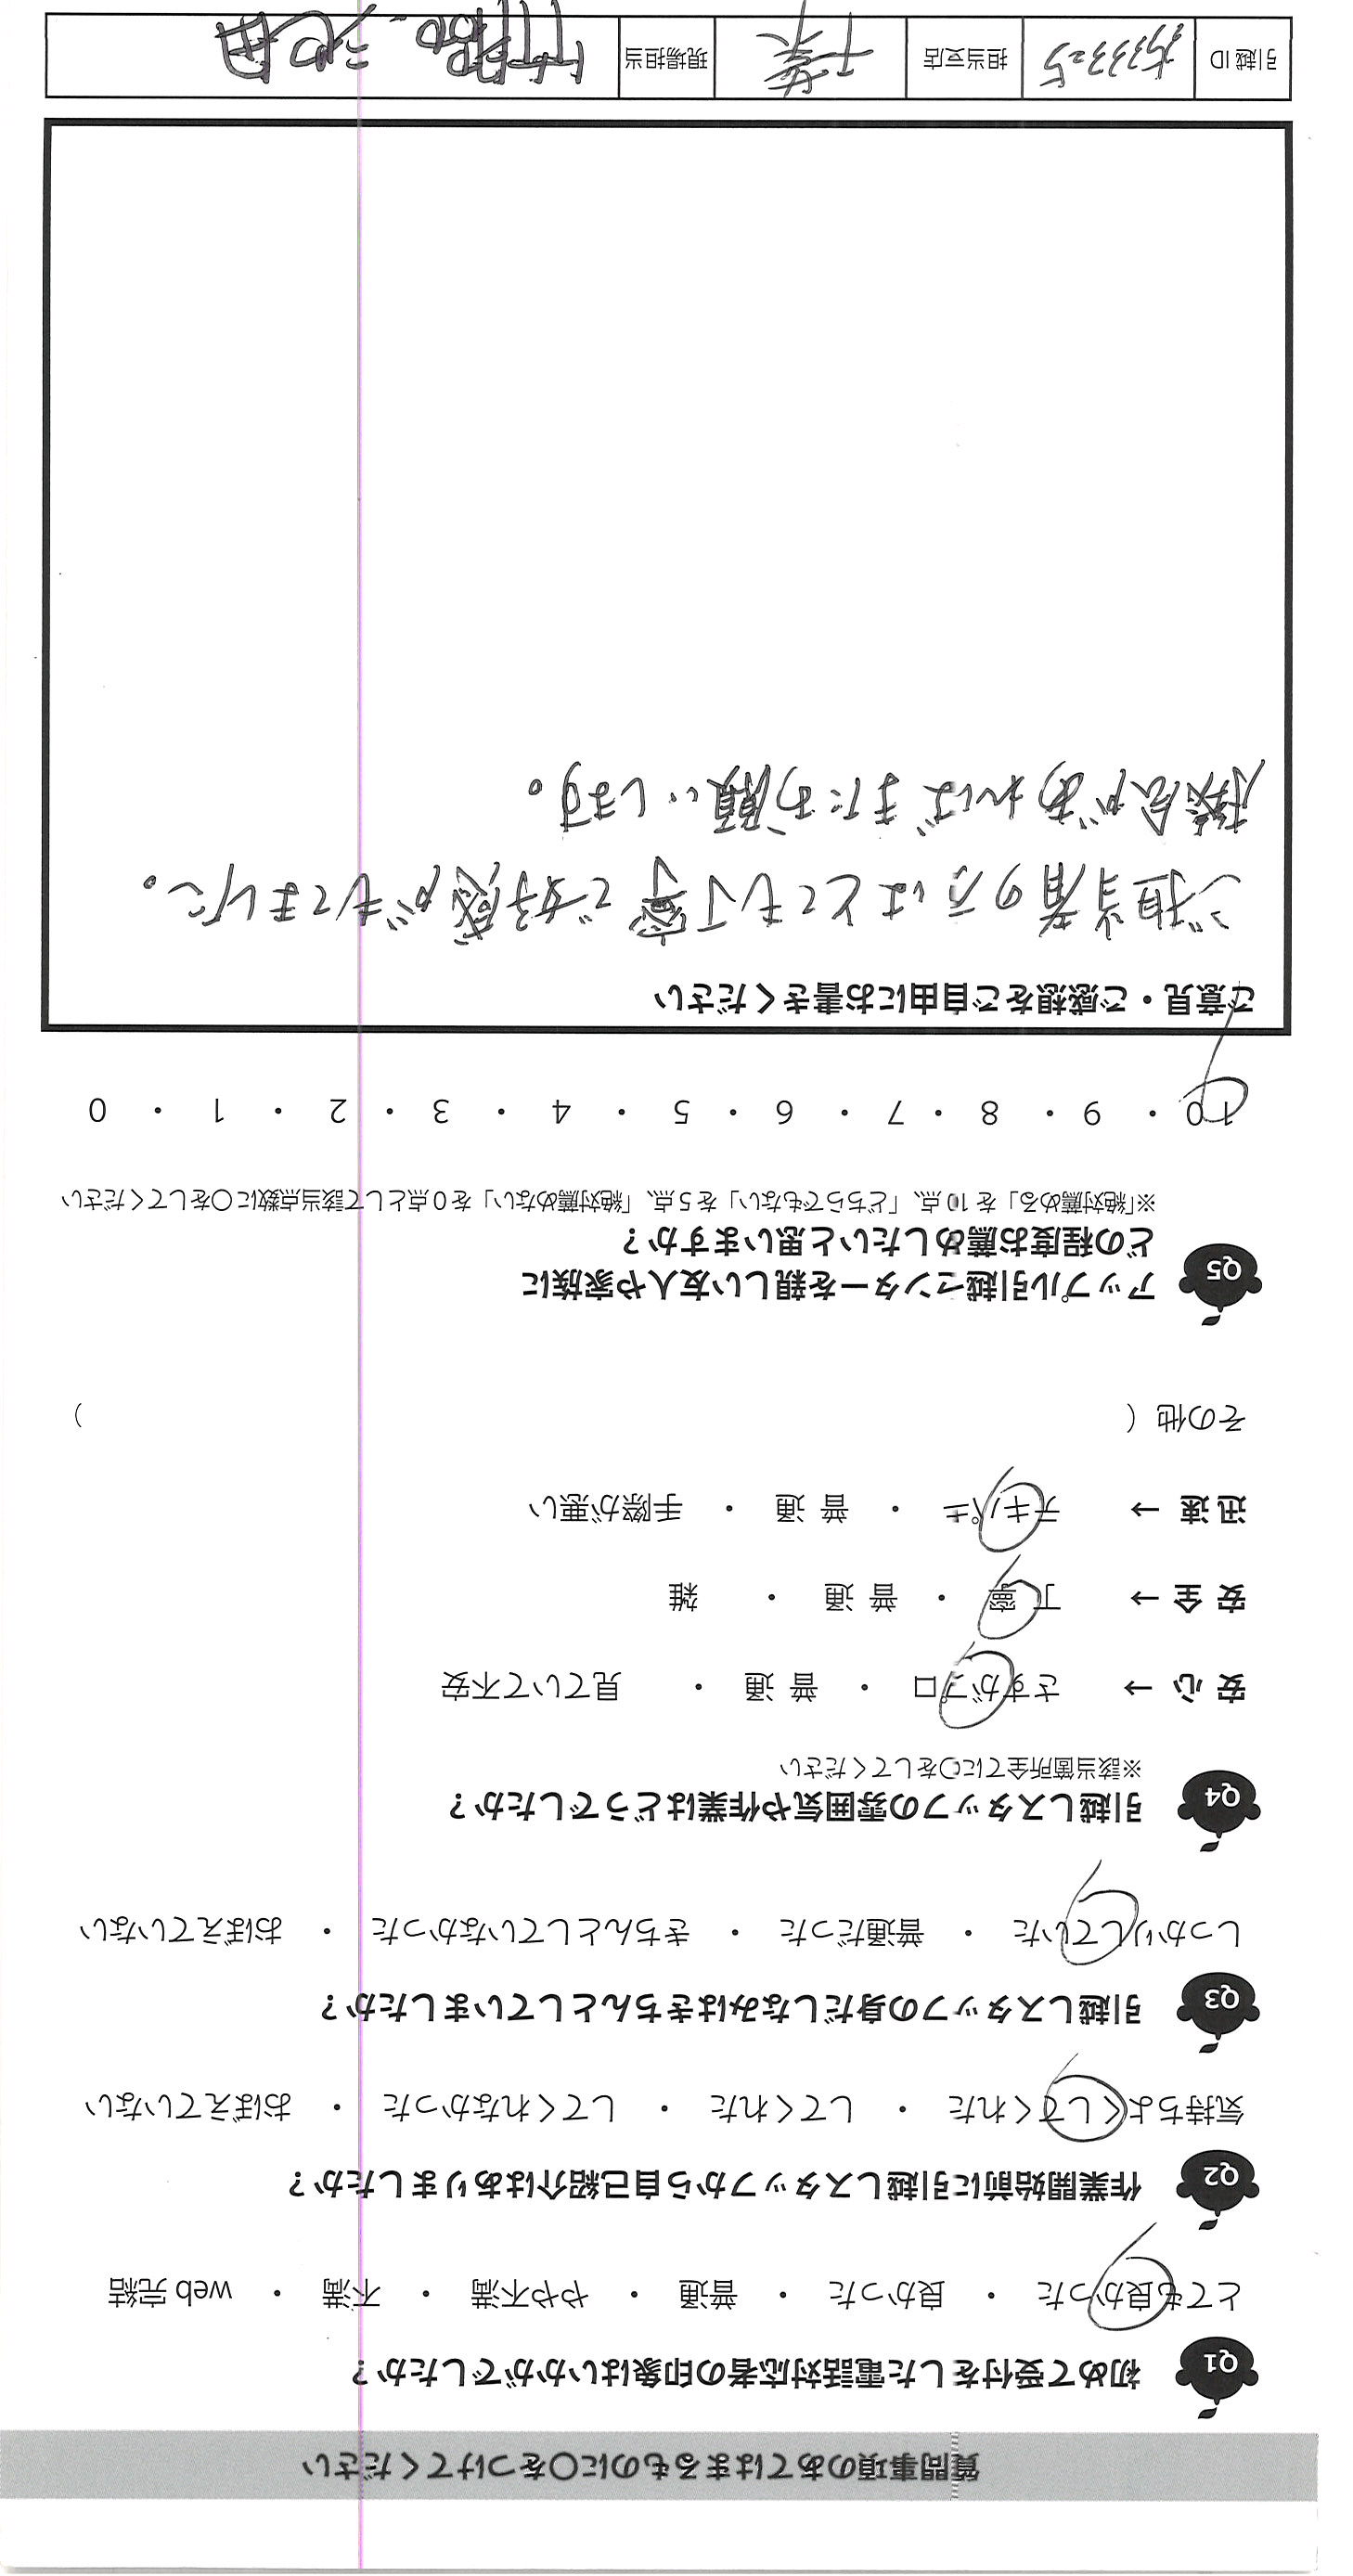 質問事項のあてはまるものに○をつけてください
Q1 初めて受付をした電話対応者の印象はいかがでしたか？
とても良かった ・ 良かった ・ 普通 ・ やや不満 ・ 不満 ・ web 完結
Q2 作業開始前に引越しスタッフから自己紹介はありましたか？
気持ちよくしてくれた ・ してくれた ・ してくれなかった ・ おぼえていない
Q3 引越しスタッフの身だしなみはきちんとしていましたか？
しっかりしていた ・ 普通だった ・ きちんとしていなかった ・ おぼえていない
Q4 引越しスタッフの雰囲気や作業はどうでしたか？
※該当箇所全てに○をしてください
安 心 → さすがプロ ・ 普 通 ・ 見ていて不安
安 全 → 丁 寧 ・ 普 通 ・ 雑
迅 速 → テキパキ ・ 普 通 ・ 手際が悪い
その他（ ）
Q5 アップル引越センターを親しい友人や家族に
どの程度お薦めしたいと思いますか？
※「絶対薦める」を 10 点、「どちらでもない」を 5 点、「絶対薦めない」を 0 点として該当点数に○をしてください
10 ・ 9 ・ 8 ・ 7 ・ 6 ・ 5 ・ 4 ・ 3 ・ 2 ・ 1 ・ 0
ご意見・ご感想をご自由にお書きください
ご担当者の方はとても丁寧で好感がもてました。
機会があればまたお願いします。
引越 ID 担当支店 千葉 現場担当